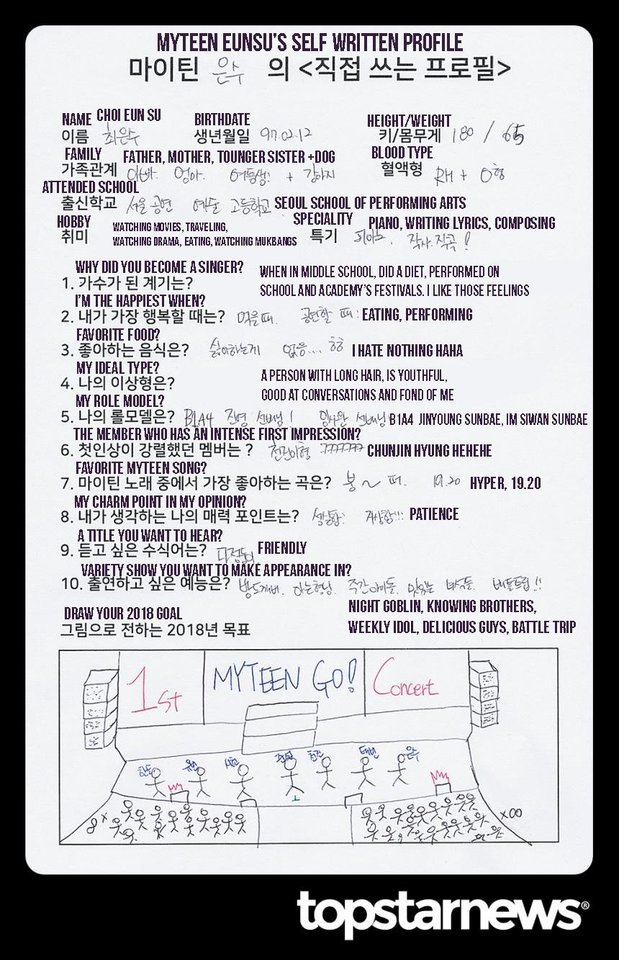 MYTEEN EUNSU'S SELF WRITTEN PROFILE
마이틴 은수 의 <직접 쓰는 프로필>
NAME CHOI EUN SU BIRTHDATE HEIGHT/WEIGHT
이름 최은수 생년월일 97.02.12 키/몸무게 180 / 65
FAMILY FATHER, MOTHER, TOUNGER SISTER +DOG BLOOD TYPE
가족관계 아빠. 엄마. 여동생. + 강아지 혈액형 RH + O형
ATTENDED SCHOOL
출신학교 서울 공연 예술 고등학교 SEOUL SCHOOL OF PERFORMING ARTS
HOBBY WATCHING MOVIES, TRAVELING, SPECIALITY PIANO, WRITING LYRICS, COMPOSING
취미 WATCHING DRAMA, EATING, WATCHING MUKBANGS 특기 피아노. 작사.작곡!
WHY DID YOU BECOME A SINGER? WHEN IN MIDDLE SCHOOL, DID A DIET, PERFORMED ON
1. 가수가 된 계기는? SCHOOL AND ACADEMY'S FESTIVALS. I LIKE THOSE FEELINGS
I'M THE HAPPIEST WHEN?
2. 내가 가장 행복할 때는? 먹을때. 공연할 때: EATING, PERFORMING
FAVORITE FOOD?
3. 좋아하는 음식은? 싫어하는게 없음... ㅎㅎ I HATE NOTHING HAHA
MY IDEAL TYPE? A PERSON WITH LONG HAIR, IS YOUTHFUL,
4. 나의 이상형은? GOOD AT CONVERSATIONS AND FOND OF ME
MY ROLE MODEL?
5. 나의 롤모델은? B1A4 진영 선배님! 임시완 선배님 B1A4 JINYOUNG SUNBAE, IM SIWAN SUNBAE
THE MEMBER WHO HAS AN INTENSE FIRST IMPRESSION?
6. 첫인상이 강렬했던 멤버는 ? 천진이형 ㅋㅋㅋㅋㅋㅋ CHUNJIN HYUNG HEHEHE
FAVORITE MYTEEN SONG?
7. 마이틴 노래 중에서 가장 좋아하는 곡은? 붕~ 떠. 19.20 HYPER, 19.20
MY CHARM POINT IN MY OPINION?
8. 내가 생각하는 나의 매력 포인트는? PATIENCE
A TITLE YOU WANT TO HEAR?
9. 듣고 싶은 수식어는? FRIENDLY
VARIETY SHOW YOU WANT TO MAKE APPEARANCE IN?
10. 출연하고 싶은 예능은? 밤도깨비. 아는형님. 주간아이돌. 맛있는 녀석들. 배틀트립!!
DRAW YOUR 2018 GOAL NIGHT GOBLIN, KNOWING BROTHERS,
그림으로 전하는 2018년 목표 WEEKLY IDOL, DELICIOUS GUYS, BATTLE TRIP
1st MYTEEN GO! Concert
은수
8× ×∞
topstarnews®